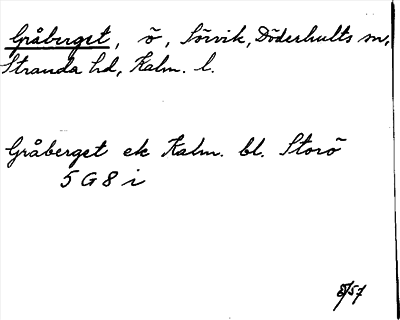 Gråberget, ö, Sörvik, Döderhults sn,
Stranda hd, Kalm. l.
Gråberget ek Kalm. bl. Storö
5 G 8 i
8/57